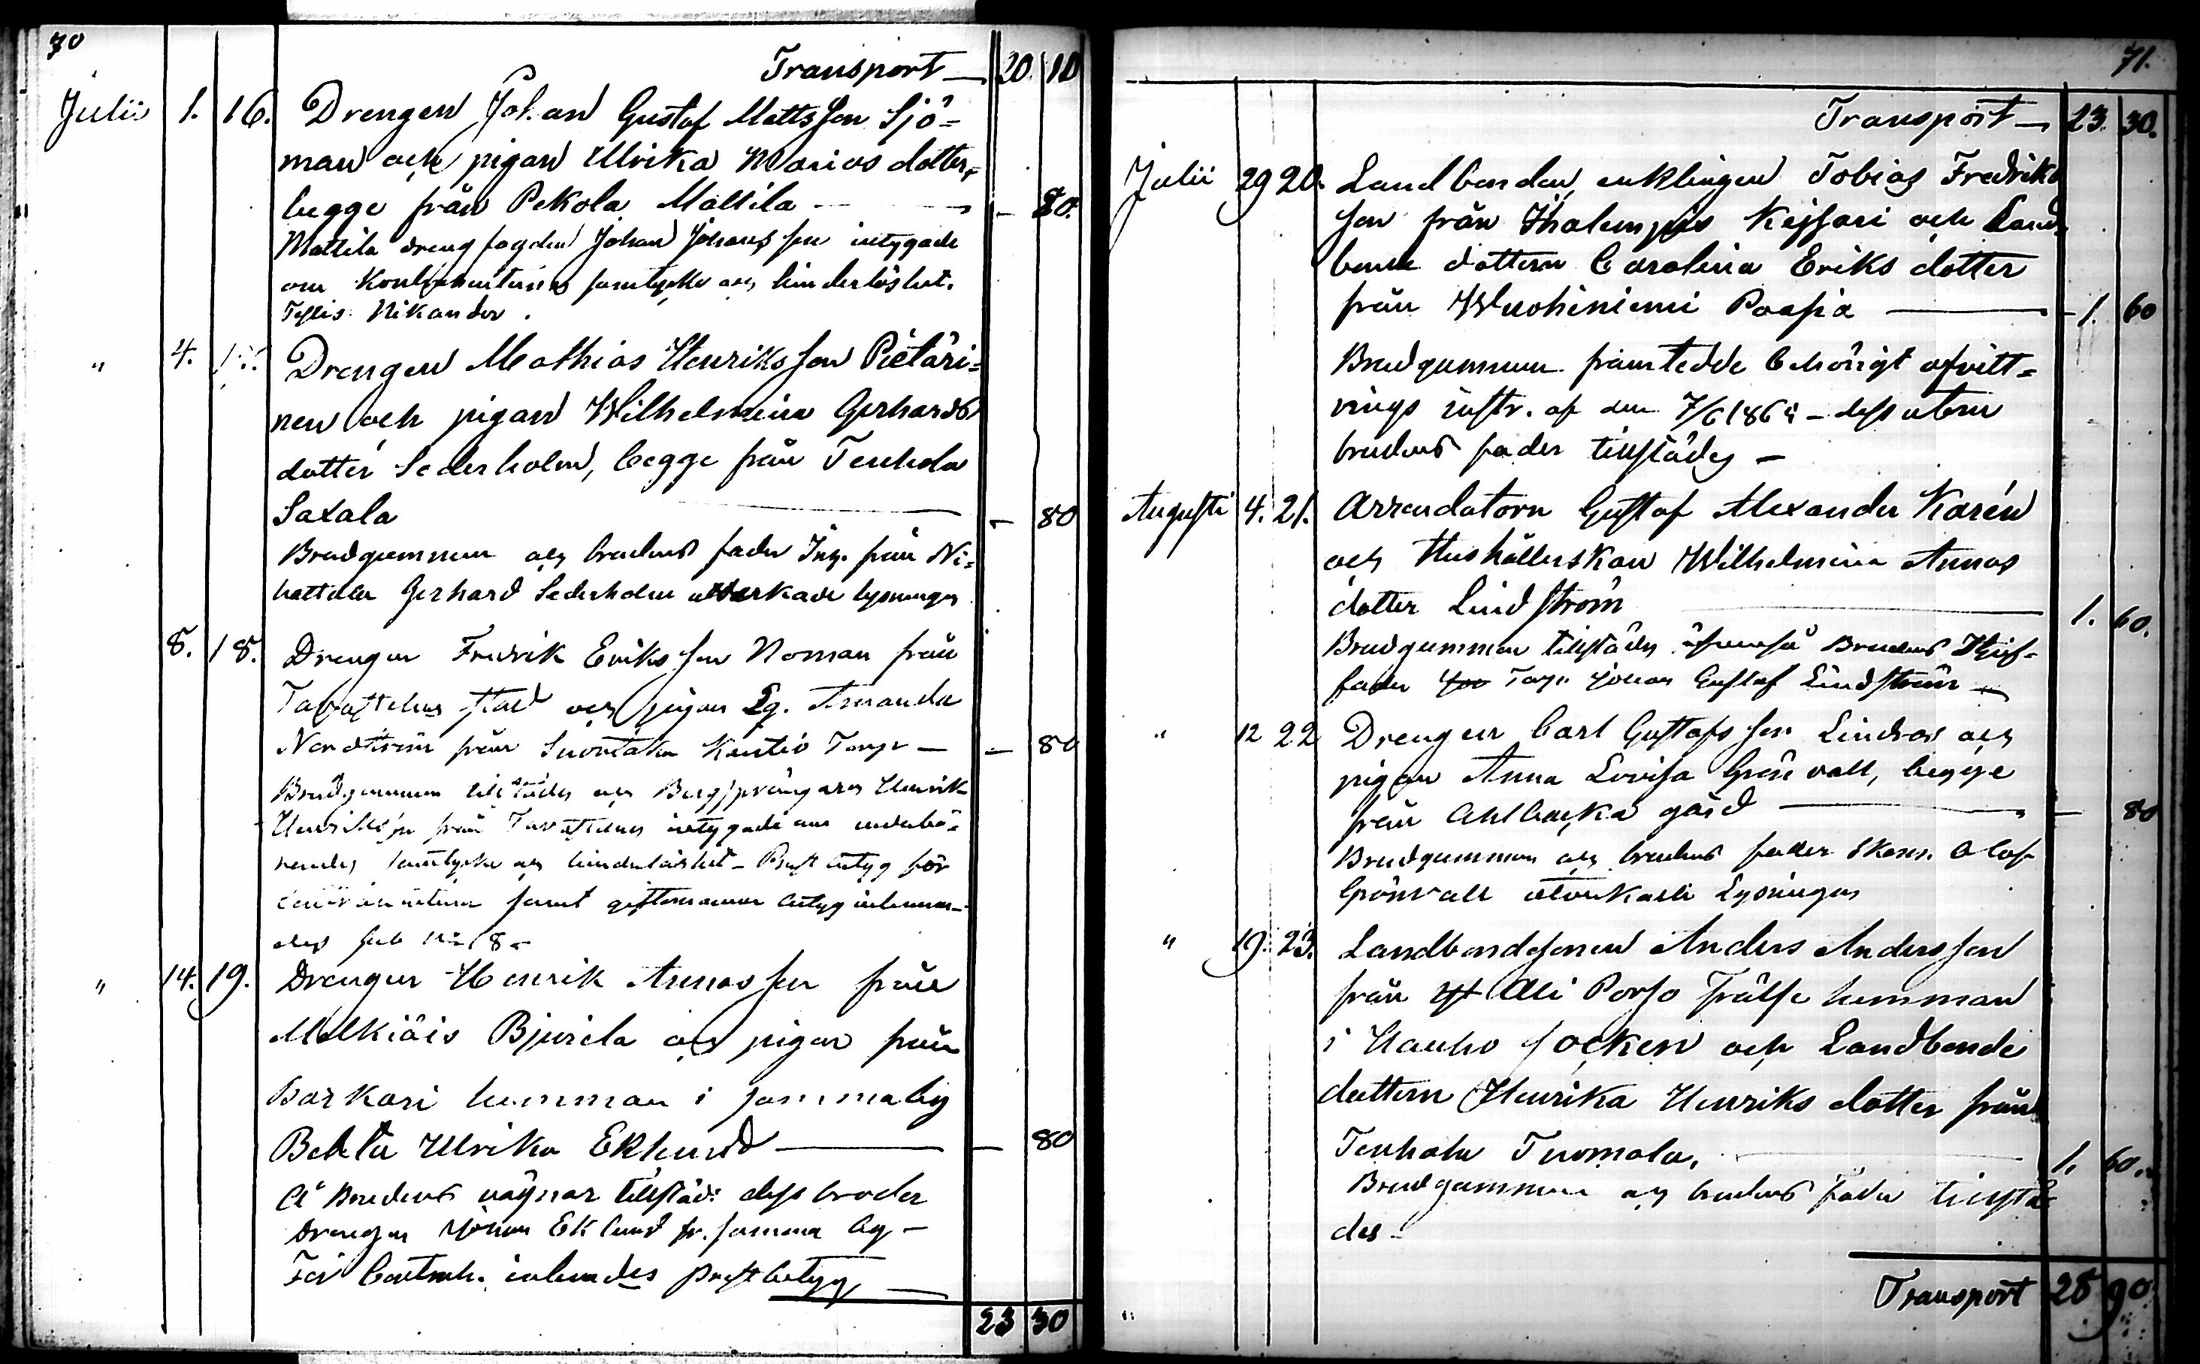 70
Transport — 20 10
Julii 1. 16. Drengen Johan Gustaf Mattsson Sjö=
man och pigan Ulrika Mariasdotter,
begge från Pekola Mattila — — 80.
Mattila drengfogden Johan Johansson intygade
om Kontrahenternes samtycke och hinderlöshet.
Nikander.
" 4. 17. Drengen Mathias Henriksson Pietäri=
nen och pigan Wilhelmina Gerhards
dotter Sederholm, begge från Tenhola
Saxala — 80
Brudgummen och brudens fader Inh. från Ni=
hattula Gerhard Sederholm utverkade lysningen
8. 18. Drengen Fredrik Eriksson Noman från
Tavastehus stad och pigan Eg. Amanda
Nordström från Suontaka Torp — — 80
Brudgummen tillstädes och Bergsprängaren Henrik
från Tavastehus intygade om
samtycke och hinderlöshet – Prest betyg för
samt giftoman betyg inlemna=
des sub No 18 –
" 14. 19. Drengen Henrik Annasson från
Melkiäis Bjurila och pigan från
Barkari hemman i samma by
Beata Ulrika Eklund — — 80
Å Brudens vägnar tillstäd: dess broder
Drengen Johan Eklund fr. samma by –
För Contrah. inlemdes prestbetyg —
23 30
71.
Transport — 23. 30.
Julii 29 20. Landbonden, enklingen Tobias Fredriks
son från Ihalempis Keijsari och Land
bonde dottern Carolina Eriks dotter
från Wuohiniemi Paasia — 1. 60
Brudgummen framtedde behörigt afvitt=
rings instr. af den – dessutom
brudens fader tillstädes –
Augusti 4. 21. Arrendatorn Gustaf Alexander Karén
och Hushållerskan Wilhelmina Annas
dotter Lindström — 1. 60.
Brudgummen tillstädes äfvenså Brudens Styf=
fader Torp. Johan Gustaf Lindström —
" 12 22 Drengen Carl Gustafsson Lindroos och
pigan Anna Lovisa Grönvall, begge
från Ahlbacka gård — — 80
Brudgummen och brudens fader Skom. Olof
Grönvall utverkade Lysningen
" 19. 23. Landbondesonen Anders Andersson
från Alli Porso frälse hemman
i Hauho socken och Landbonde
dottern Henrika Henriks dotter från
Tenhola Tuomola, — 1. 60.
Brudgummen och brudens fader tillstä
des –
Transport 28 90